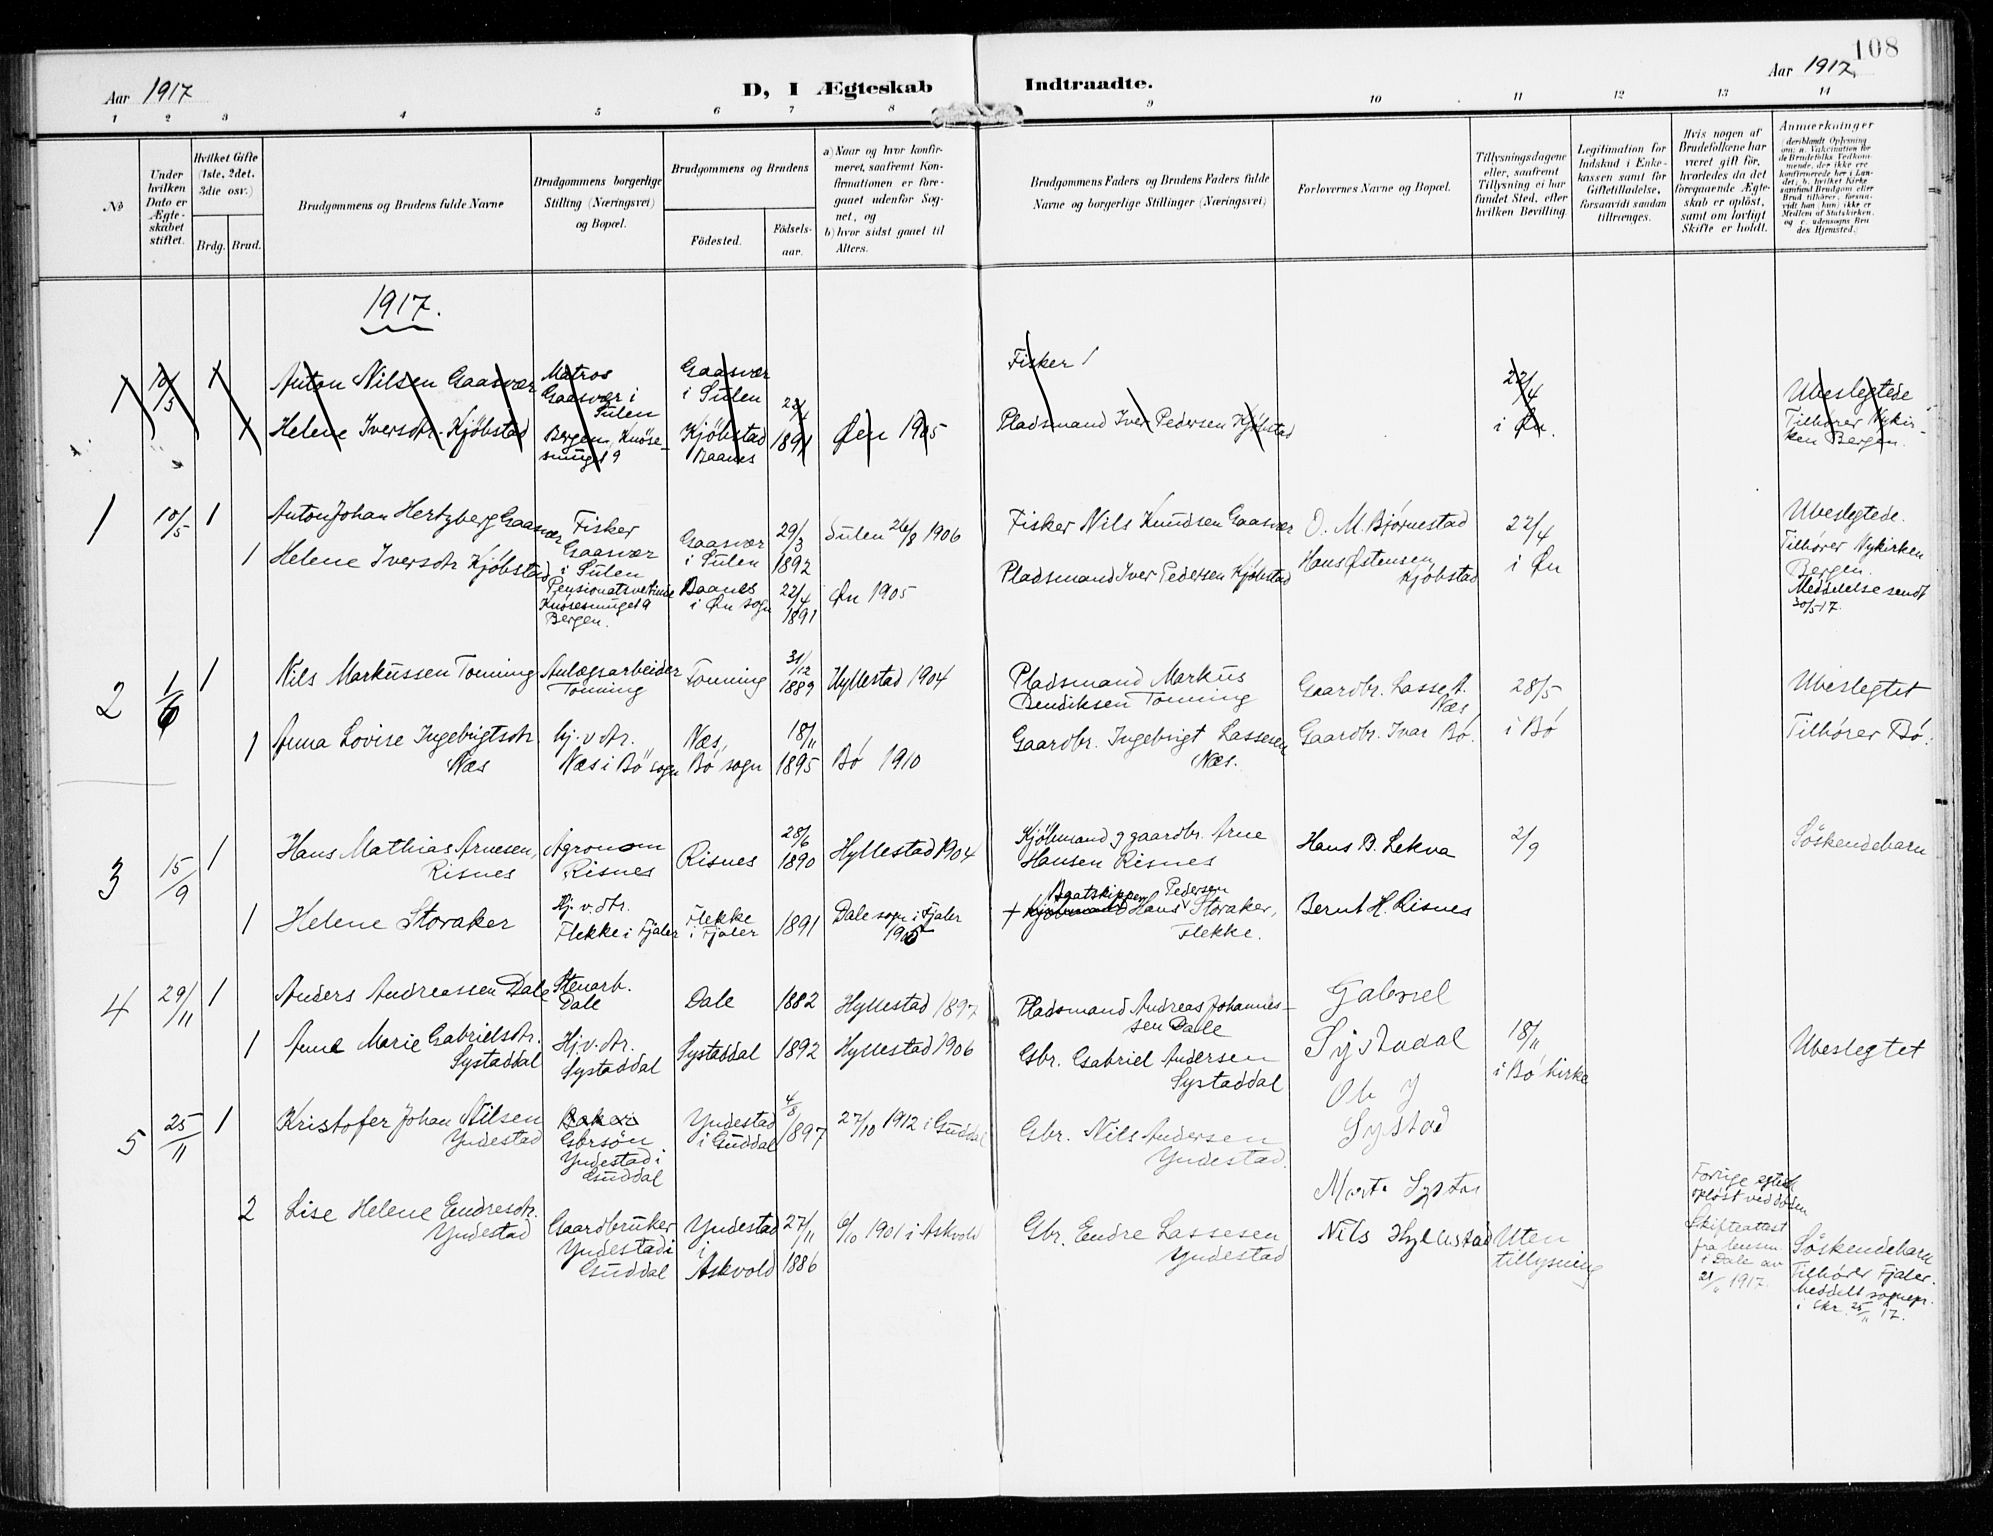 108
Aar 1917
D, I Ægteskab Indtraadte.
Aar 1917
1 2 3 4 5 6 7 8 9 10 11 12 13 14
No
Under hvilken Dato er Ægteskabet stiftet.
Hvilket Gifte (1ste, 2det, 3die osv.)
Brdg. Brud.
Brudgommens og Brudens fulde Navne
Brudgommens borgerlige Stilling (Næringsvei) og Bopæl.
Brudgommens og Brudens
Födested.
Födselsaar.
a) Naar og hvor konfirmeret, saafremt Konfirmationen er foregaaet udenfor Sognet, og
b) hvor sidst gaaet til Alters.
Brudgommens Faders og Brudens Faders fulde Navne og borgerlige Stillinger (Næringsvei)
Forlovernes Navne og Bopæl.
Tillysningsdagene eller, saafremt Tillysning ei har fundet Sted, eller hvilken Bevilling.
Legitimation for Indskud i Enkekassen samt for Giftetilladelse, forsaavidt saadan tiltrænges.
Hvis nogen af Brudefolkene har været gift før, hvorledes da det foregaaende Ægteskab er oplöst, samt om lovligt Skifte er holdt.
Anmærkninger
(deriblandt Oplysning om: a. Vakcination for de Brudefolks Vedkommende, der ikke ere konfirmerede her i Landet, b. hvilket Kirkesamfund Brudgom eller Brud tilhører, forsaavidt han (hun) ikke er Medlem af Statskirken, og c. udensogns Brudes Hjemsted.)
1917.
1 10/5 1 Anton Nilsen Gaasvær
Matros
Gaasvær i
Sulen
Gaasvær
i Sulen
Fisker
22/4
i Øn.
Ubeslegtede
1 Helene Iversdtr. Kjöbstad
Bergen, Knöse-
smuget 9
Kjöbstad
Baanes
22/4
1891
Øen 1905
Pladsmand Iver Pedersen Kjöbstad
Tilhører Nykir-
ken Bergen.
1 10/5 1 Anton Johan Hertzberg Gaasvær
Fisker
Gaasvær
i Sulen
Gaasvær
i Sulen
29/3
1892
Sulen 26/8 1906
Fisker Nils Knudsen Gaasvær
O. M. Bjørnestad
22/4
i Øn
Ubeslegtede.
1 Helene Iversdtr Kjöbstad
Knösesmuget 9
Bergen.
Baanes
i Øn sogn
22/4
1891
Øn 1905
Pladsmand Iver Pedersen Kjöbstad
Hans Østensen
Kjöbstad
Tilhører Nykirken
Bergen.
Meddelelse sendt
30/5-17.
2 1/6 1 Nils Markussen Tonning
Anlægsarbeider
Tonning
Tonning
31/12
1889
Hyllestad 1904
Pladsmand Markus
Bendiksen Tonning
Gaardbr. Lasse A.
Næs
28/5
i Bö
Ubeslegtet
1 Anna Lovise Ingebrigtsdtr.
Næs
hj. v. dtr.
Næs i Bö sogn
Næs,
Bö sogn
18/11
1895
Bö 1910
Gaardbr. Ingebrigt Lassesen
Næs.
Gaardbr. Ivar Bö.
Tilhører Bö.
3 15/9 1 Hans Mathias Arnesen,
Risnes
Agronom
Risnes
Risnes
28/6
1890
Hyllestad 1904
Kjöbmand og gaardbr. Arne
Hansen Risnes
Hans B. Lekva
2/9
Söskendebarn
1 Helene Storaker
Hj. v. dtr.
Flekke i Fjaler
Flekke
i Fjaler
1891
Dale sogn i Fjaler
+ Baatskipper Kjöbmand Hans Pedersen Storaker,
Flekke.
Bernt H. Risnes
4 29/11 1 Anders Andreassen Dale
Stenarb.
Dale
Dale
1882
Hyllestad 1897
Pladsmand Andreas Johannes-
sen Dale
Gabriel
Systadal
1 Anne Marie Gabrielsdtr.
Systaddal
Hj. v. dtr.
Systaddal
Systaddal
1892
Hyllestad 1906
Gbr. Gabriel Andersen
Systaddal
Ole J
Systad
18/11
i Bö kirke
Ubeslegtet
5 25/11 1 Kristofer Johan Nilsen
Yndestad
Gbrsön
Yndestad i
Guddal
Yndestad
i Guddal
4/8
1897
27/10 1912 i Guddal
Gbr. Nils Andersen
Yndestad.
2 Lise Helene Endresdtr.
Yndestad
Gaardbruker
Yndestad i
Guddal
Yndestad
i
Askvold
27/11
1886
6/10 1901 i Askvold
Gbr. Endre Lassesen
Yndestad
Nils Hyllestad
Uten
tillysning
Forrige egtesk.
opløst ved døden
Skifteattest
fra lensm.
i Dale av
21/11 1917.
Söskendebarn
Tilhører Fjaler.
Meddelt sognepr.
i skr. 25/11 17.